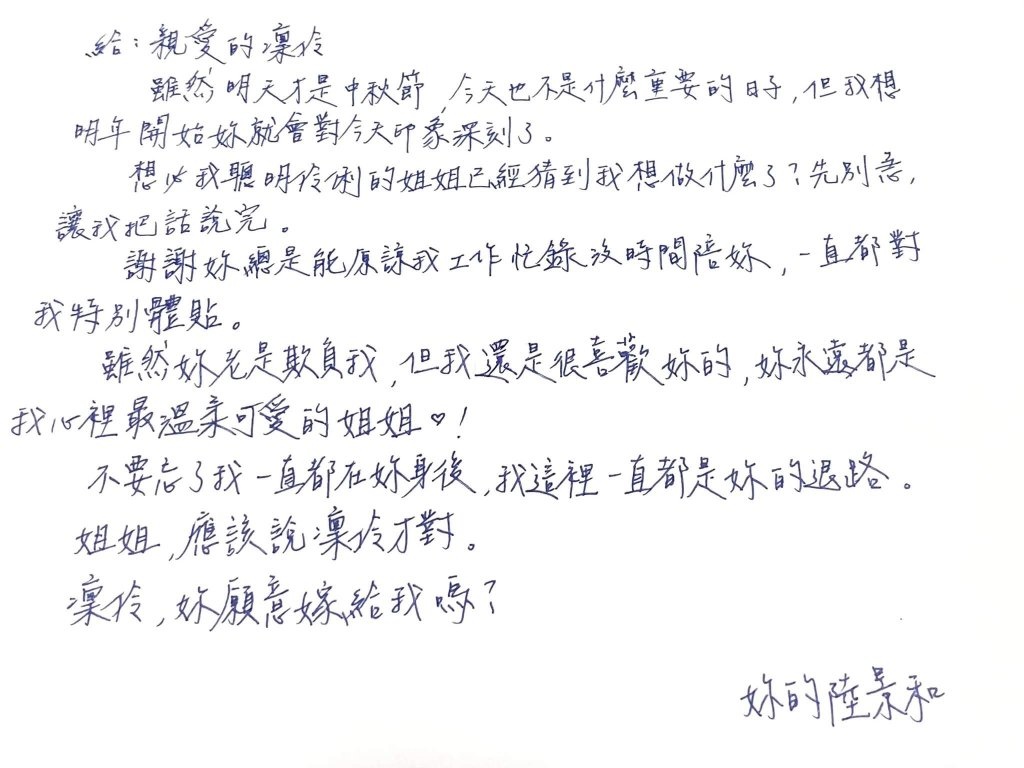 給：親愛的凜伶
雖然明天才是中秋節，今天也不是什麼重要的日子，但我想
明年開始妳就會對今天印象深刻了。
想必我聰明伶俐的姐姐已經猜到我想做什麼了？先別急，
讓我把話說完。
謝謝妳總是能原諒我工作忙錄沒時間陪妳，一直都對
我特別體貼。
雖然妳老是欺負我，但我還是很喜歡妳的，妳永遠都是
我心裡最溫柔可愛的姐姐♡！
不要忘了我一直都在妳身後，我這裡一直都是妳的退路。
姐姐，應該說凜伶才對。
凜伶，妳願意嫁給我嗎？
妳的陸景和